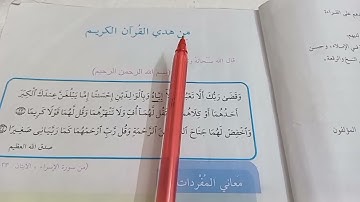 من هدي القرآن الكريم
قال الله سبحانه
بسم الله الرحمن الرحيم)
وَقَضَىٰ رَبُّكَ أَلَّا إِيَّاهُ وَبِالْوَالِدَيْنِ إِحْسَانًا إِمَّا يَبْلُغَنَّ عِندَكَ الْكِبَرَ
أَحَدُهُمَا أَوْ كِلَاهُمَا تَقُل لَّهُمَا أُفٍّ وَلَا تَنْهَرْهُمَا وَقُل لَّهُمَا قَوْلًا كَرِيمًا
وَاخْفِضْ لَهُمَا جَنَاحَ الرَّحْمَةِ وَقُل رَّبِّ ارْحَمْهُمَا كَمَا رَبَّيَانِي صَغِيرًا
صدق الله العظيم
(من سورة الإسراء
معاني المُفْرَدات
على القراءة